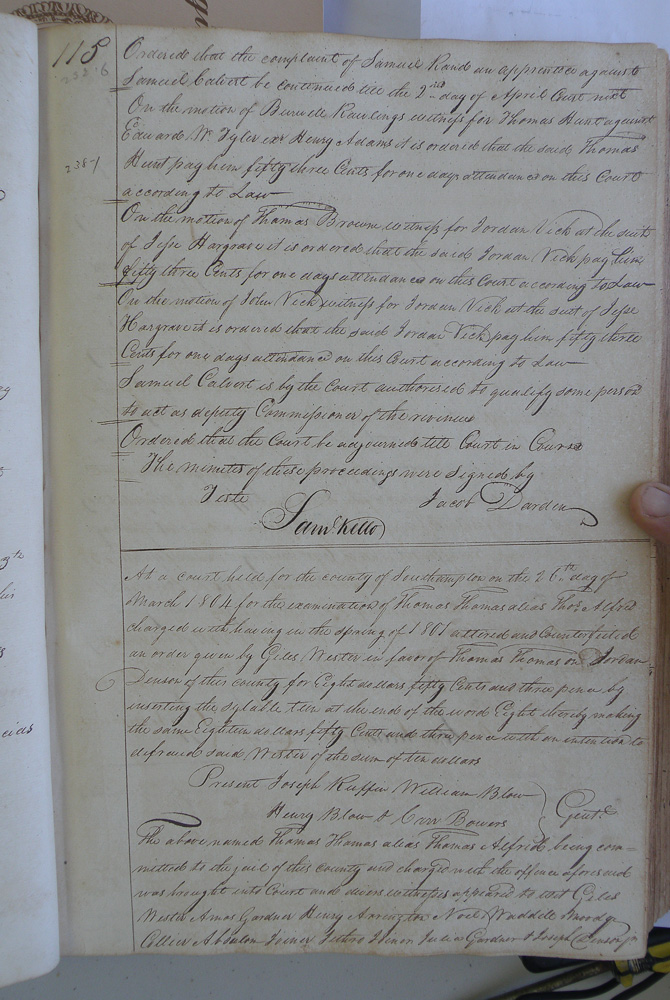 115
Ordered that the complaint of Samuel Rand an apprentice against
Samuel Calvert be continued till the 2nd day of April Court next
On the motion of Burwell Rawlings witness for Thomas Hunt against
Edward W. Tyler exr Henry Adams it is ordered that the said Thomas
Hunt pay him fifty three Cents for one days attendance on this Court
according to Law
On the motion of Thomas Brown witness for Jordan Vick at the suit
of Jesse Hargrave it is ordered that the said Jordan Vick pay him
fifty three Cents for one days attendance on this Court according to Law
On the motion of John Vick witness for Jordan Vick at the suit of Jesse
Hargrave it is ordered that the said Jordan Vick pay him fifty three
Cents for one days attendance on this Court according to Law
Samuel Calvert is by the Court authorised to qualify some person
to act as deputy Commissioner of the revenue
Ordered that the Court be adjourned till Court in Course
The minutes of these proceedings were signed by
Teste Jacob Darden
Saml Kello
At a court held for the county of Southampton on the 26th day of
March 1804 for the examination of Thomas Thomas alias Thos Alfred
charged with having in the spring of 1801 altered and Counterfeited
an order given by Giles Wester in favor of Thomas Thomas on Jordan
Denson of this county for Eight dollars fifty Cents and three pence by
inserting the sylable teen at the end of the word Eight thereby making
the same Eighteen dollars fifty Cents and three pence with an intention to
defraud said Wester of the sum of ten dollars
Present Joseph Ruffin William Blow
Henry Blow & Carr Bowers Gent.
The above named Thomas Thomas alias Thomas Alfred being com-
mitted to the jail of this county and charged with the offence aforesaid
was brought into Court and divers witnesses appeared to wit Giles
Wester Amos Gardner Henry Arrington Noel Waddill
Absalom Joiner Jethro Joiner Julia Gardner & Joseph Denson jr